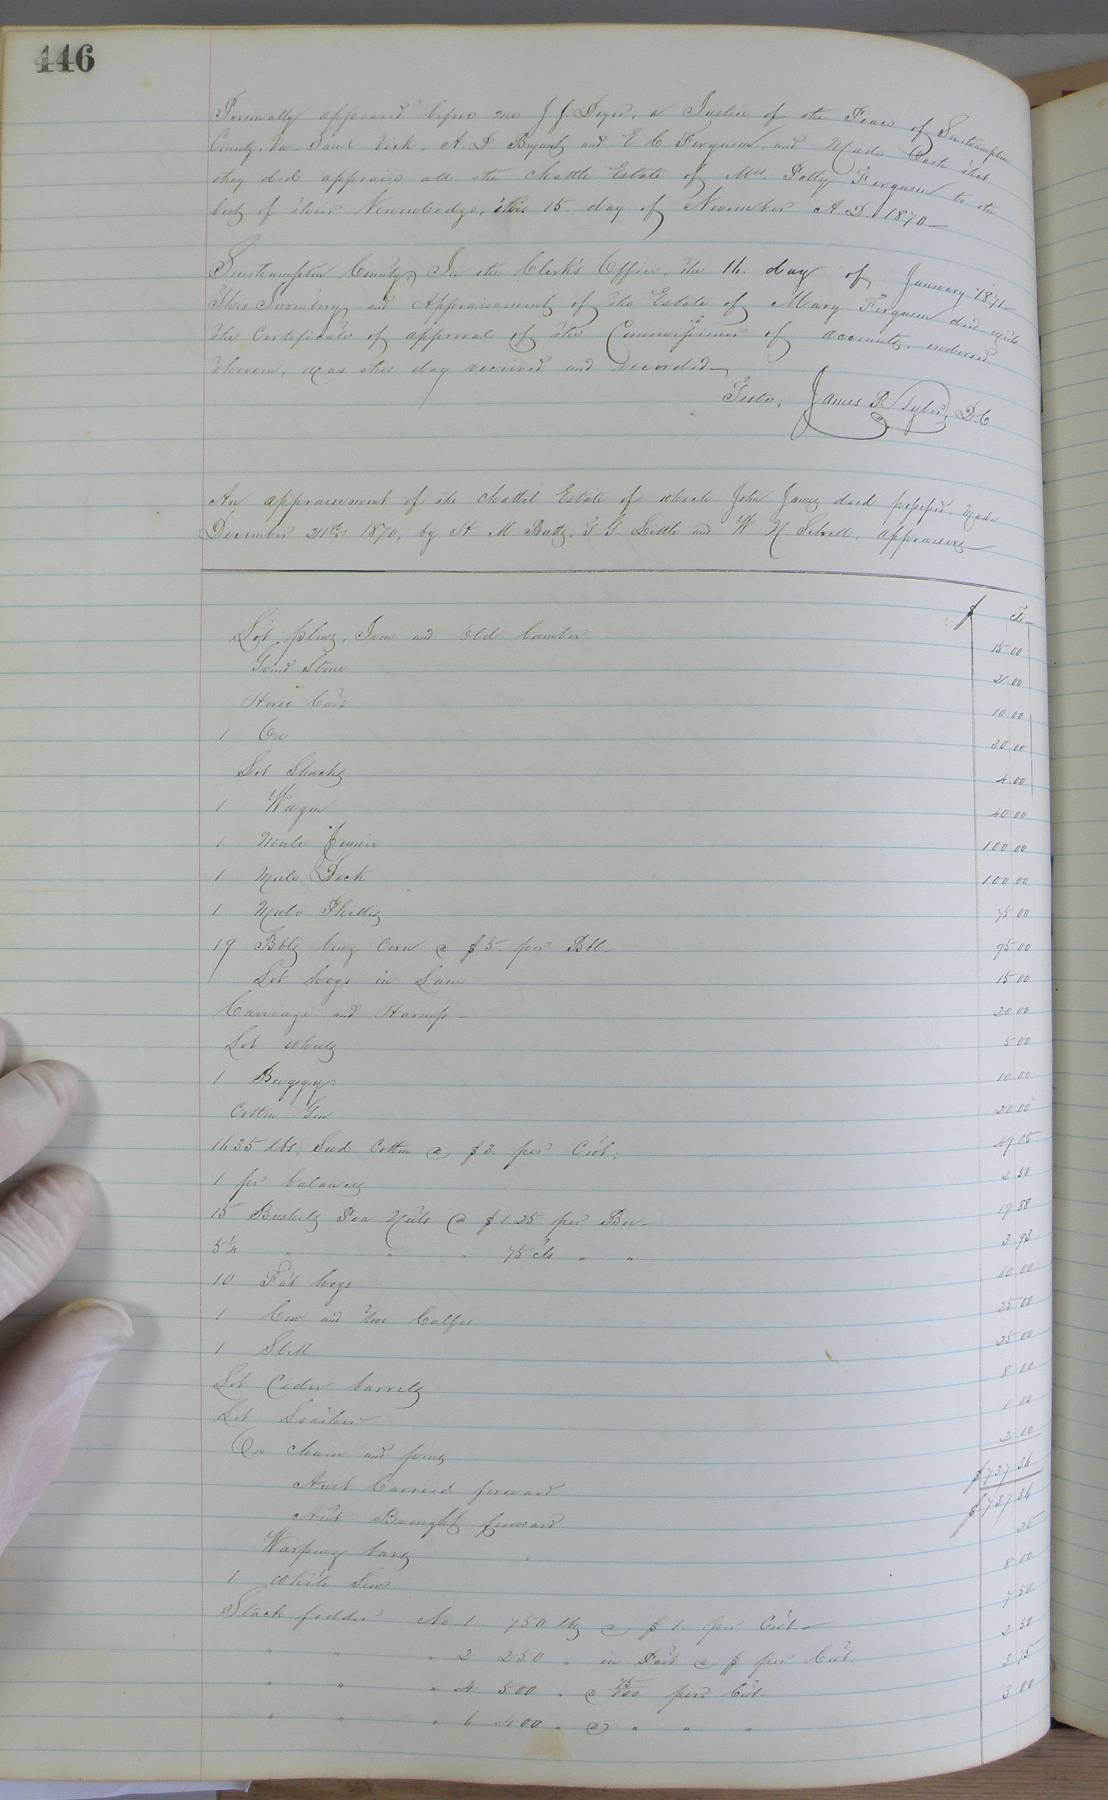 446
Personally appeared before me J J Dyer, a Justice of the Peace of Southampton
County, Va Saml Vick, A. D Bryant and E C Ferguson, and Made Oath that
they did appraise all the Chattle Estate of Mrs. Polly Ferguson to the
best of their Knowledge, this 15 day of November A.D. 1870
Southampton County, In the Clerk's Office, the 14. day of January 1871
This Inventory and Appraisement of the Estate of Mary Ferguson decd with
the Certificate of approval of the Commissioner of accounts, endorsed
thereon, was this day received and recorded
Teste, James R Tyler, D.C
An appraisement of the chattel Estate of which John James died possessed Made
December 21st 1870, by H M Batts, T. G. Little and W. N Sebrell, appraisers
$ Cts
Lot plows, Iron and Old lumber 15 00
Grind Stone 2 00
Horse Cart 10 00
1 Ox 30 00
Lot Shucks 4 00
1 Wagon 40 00
1 Mule 100 00
1 Mule Dick 100 00
1 Mule Phillis 75 00
19 Bbls long Corn @ $5. per Bbl 95 00
Lot hogs in Lane 15 00
Carriage and Harness 20 00
Lot Wheels 5 00
1 Buggy 10 00
Cotton Gin 20 00
1635 lbs. Seed Cotton @ $3 per Cwt. 49 05
1 pr balances 2 50
15 Bushels Pea Nuts @ $1.25 per Bu 19 88
5¼ " " " 75 cts " " 3 93
10 Fat hogs 60 00
1 Cow and two Calfes 25 00
1 Still 25 00
Lot Cider barrels 8 00
Lot Leather 1 00
Ox chain and 2 00
Amt Carried forward $737 36
Amt Brought forward $737 36
Warping bars 25
1 White Sow 8 00
Stack fodder No 1 750 lbs @ $1. per Cwt 7 50
" " " 2 250 " in Part @ $ per Cwt. 2 50
" " " 4 500 " @ 75/100 per Cwt 3 75
" " " 6 400 " @ " " " 3 00